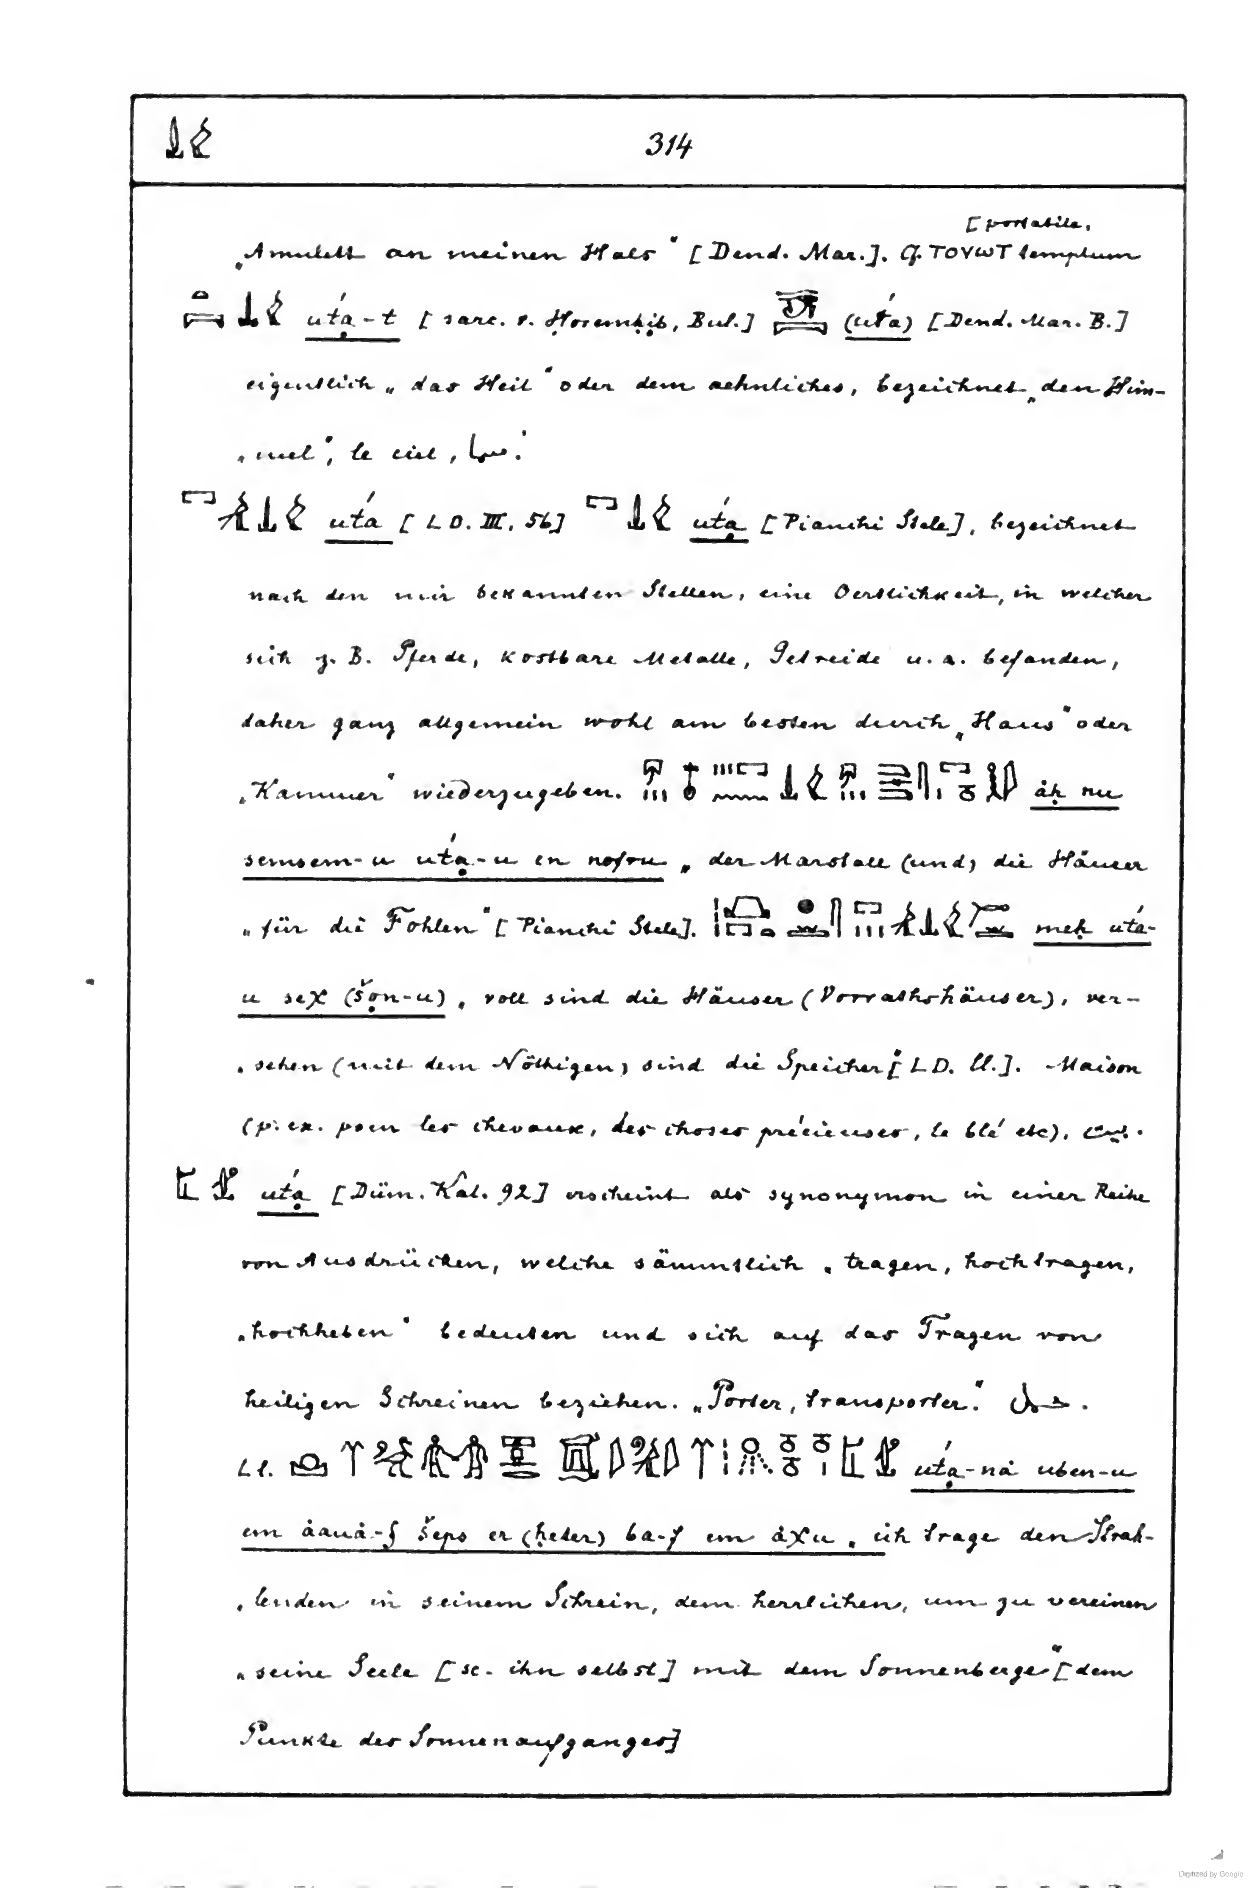 314
[portabile.
„Amulett an meinen Hals“ [Dend. Mar.]. Cf. ⲦⲞⲨⲰⲦ templum
utá̤-t [sarc. v. Ḥoremḥib, Bul.] (utá) [Dend. Mar. B.]
eigentlich „das Heil“ oder dem aehnliches, bezeichnet „den Him-
„mel“, le ciel, سما.
utá [LD. III, 56] utá̤ [Pianchi Stele], bezeichnet
nach den mir bekannten Stellen, eine Oertlichkeit, in welcher
sich z. B. Pferde, kostbare Metalle, Getreide u. a. befanden,
daher ganz allgemein wohl am besten durch „Haus“ oder
„Kammer“ wiederzugeben. àḥ nu
semsem-u utá̤-u en nofru „der Marstall (und) die Häuser
„für die Fohlen“ [Pianchi Stele]. meḥ utá-
u seχ (šon-u) „voll sind die Häuser (Vorrathshäuser), ver-
„sehen (mit dem Nöthigen) sind die Speicher“ [LD. ll.]. Maison
(p. ex. pour les chevaux, des choses précieuses, le blé etc),
utá̤ [Düm. Kal. 92] erscheint als synonymon in einer Reihe
von Ausdrücken, welche sämmtlich „tragen, hochtragen,
„hochheben“ bedeuten und sich auf das Tragen von
heiligen Schreinen beziehen. „Porter, transporter.“ حمل.
L l. utá̤-nà uben-u
em àauà-f šeps er (ḥeter) ba-f em àχu „ich trage den Strah-
„lenden in seinem Schrein, dem herrlichen, um zu vereinen
„seine Seele [sc. ihn selbst] mit dem Sonnenberge“ [dem
Punkte des Sonnenaufganges]
Digitized by Google